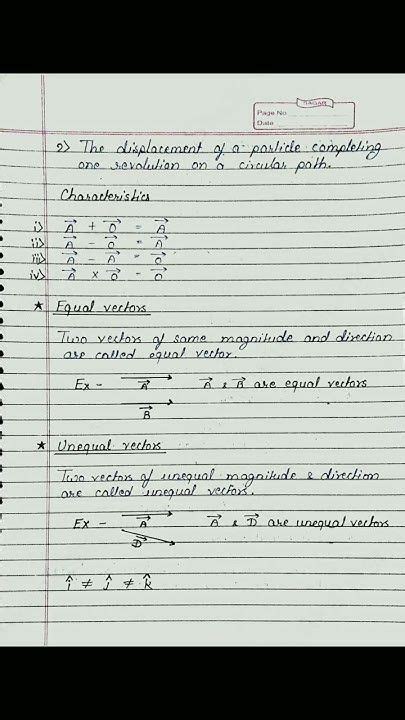 SAGAR
Page No
Date
2) The displacement of a particle completing
one revolution on a circular path.
Characteristics
i) A⃗ + O⃗ = A⃗
ii) A⃗ - O⃗ = A⃗
iii) A⃗ - A⃗ = O⃗
iv) A⃗ × O⃗ = O⃗
★ Equal vectors
Two vectors of same magnitude and direction
are called equal vector.
Ex - A⃗ A⃗ & B⃗ are equal vectors
B⃗
★ Unequal vectors
Two vectors of unequal magnitude & direction
are called unequal vectors.
Ex - A⃗ A⃗ & D⃗ are unequal vectors
D⃗
î ≠ ĵ ≠ k̂